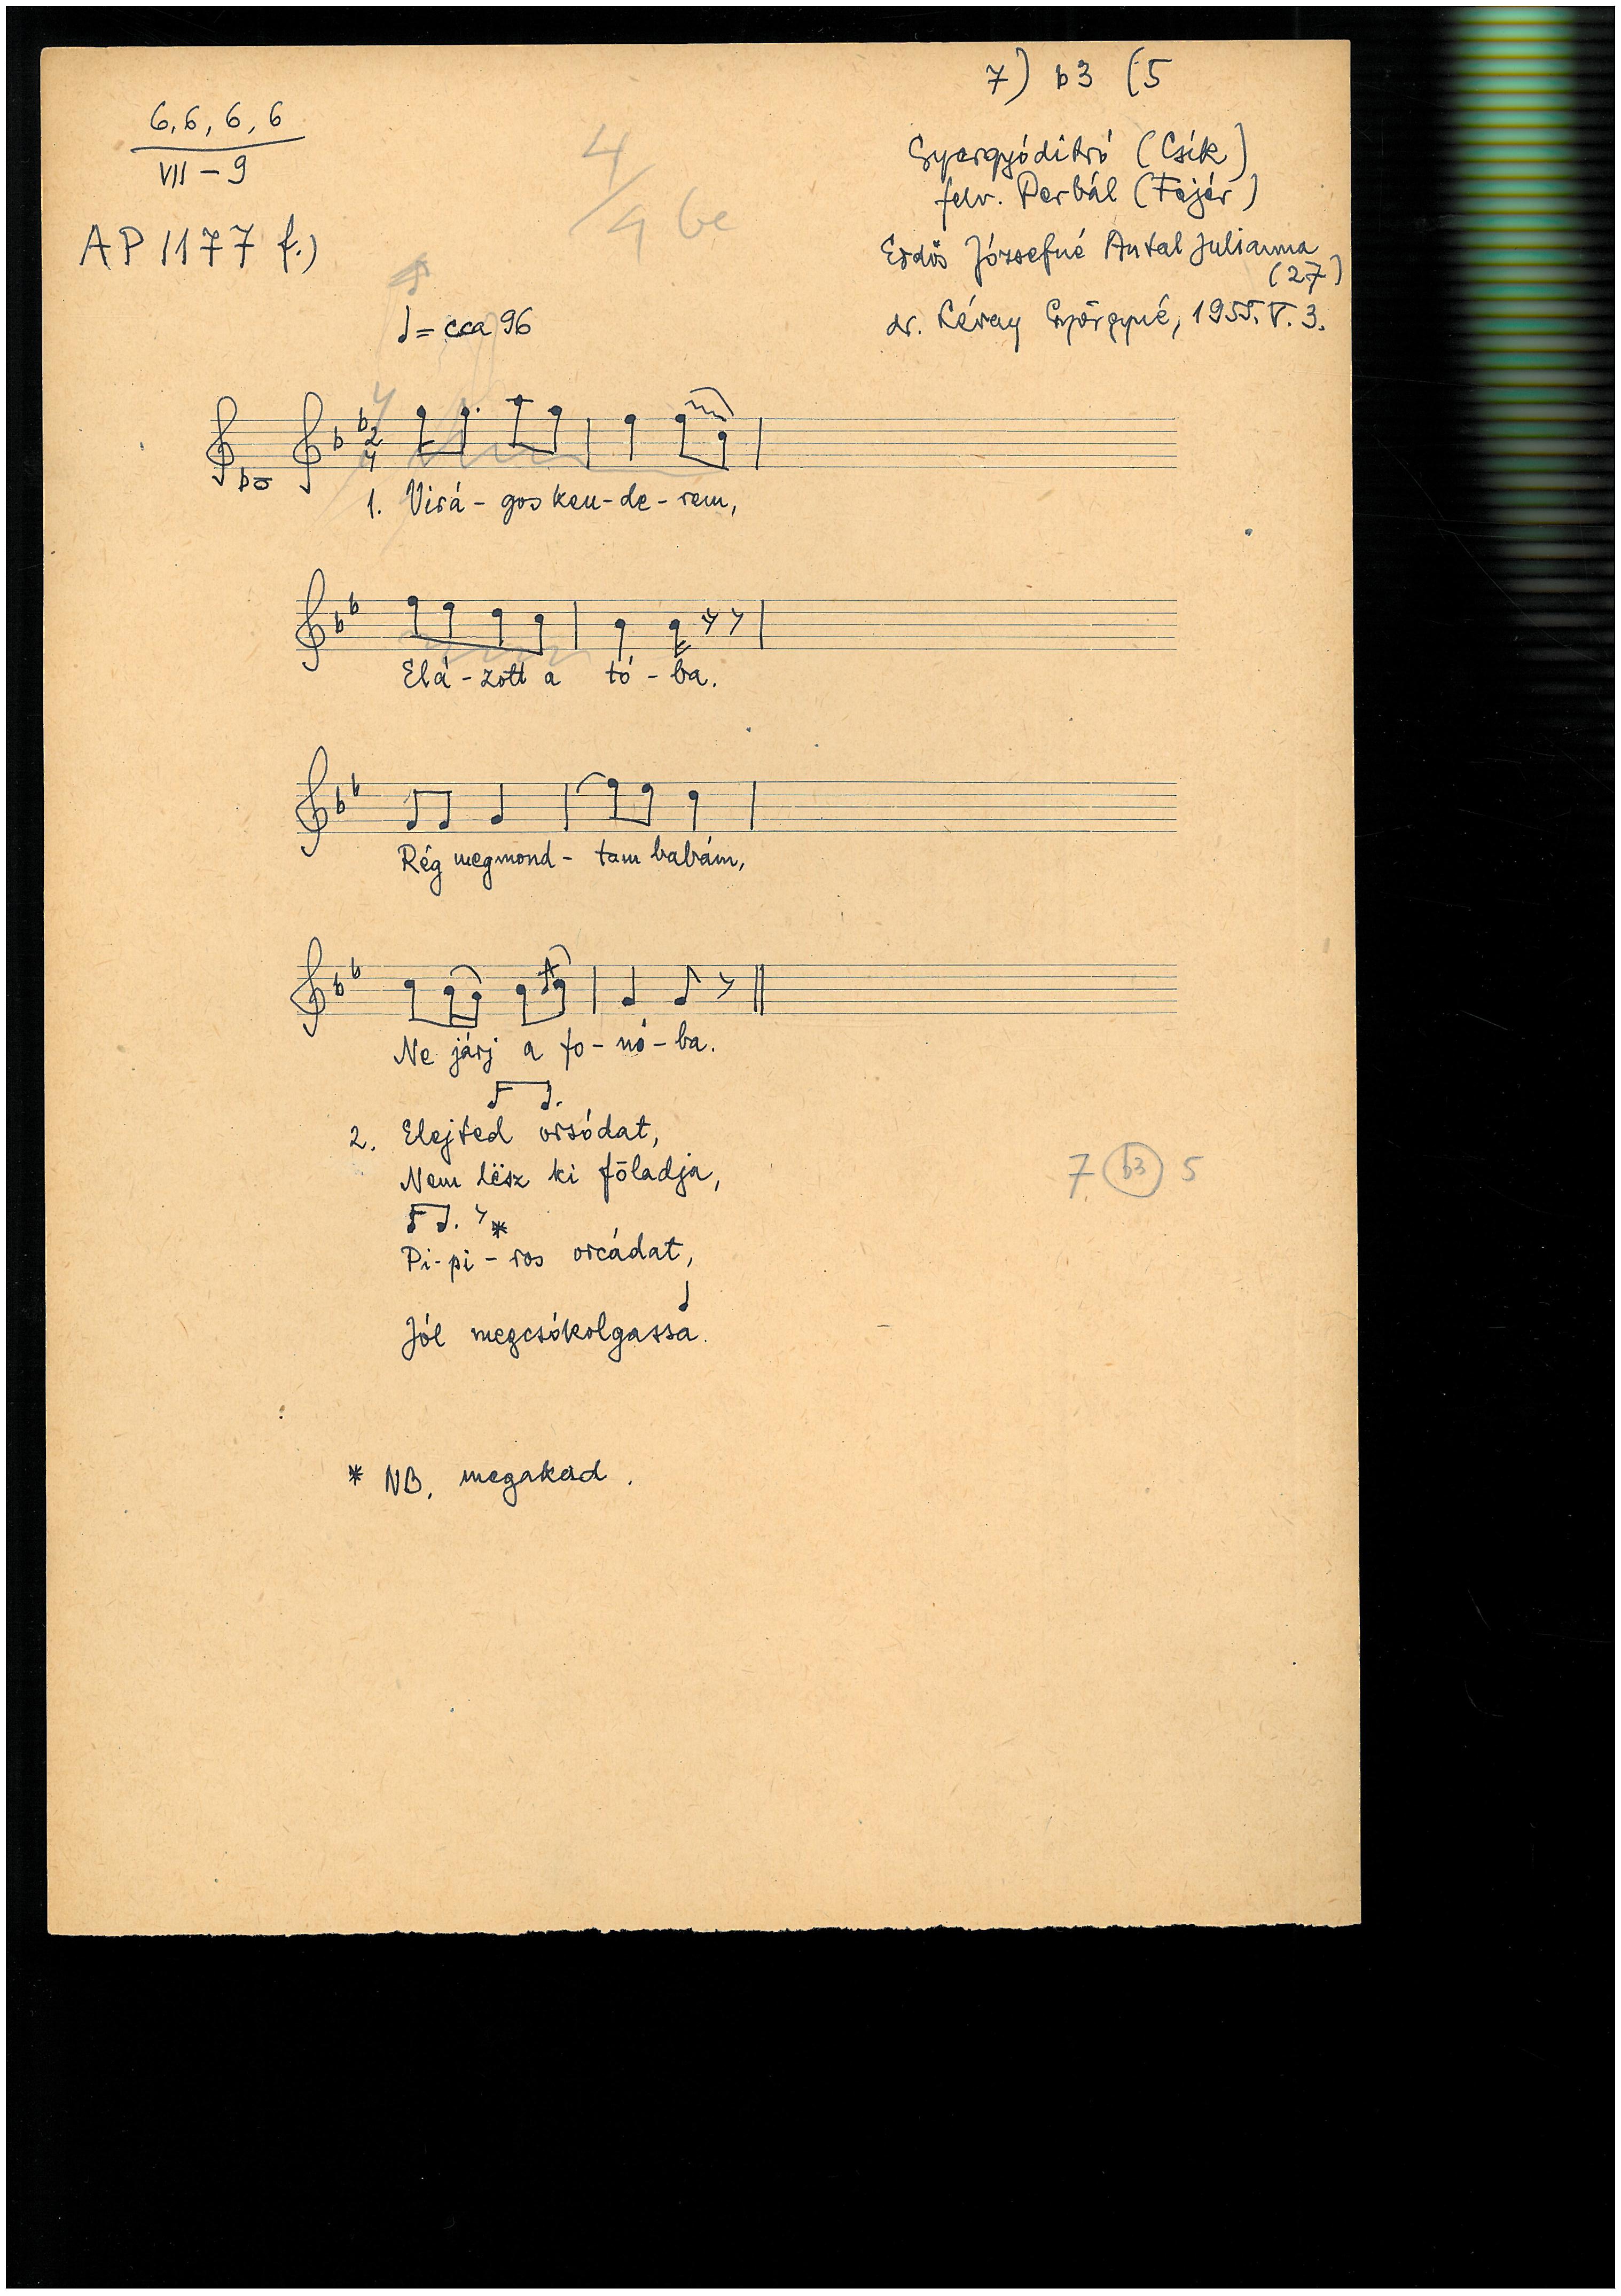 7) b3 (5
6, 6, 6, 6
VII – 9
4/4 be
Gyergyóditró (Csík)
felv. Perbál (Fejér)
AP 1177 f.)
Erdős Józsefné Antal Julianna
(27)
dr. Léray Györgyné, 1955. V. 3.
♩ = cca 96
2/4
1. Virá - gos ken - de - rem,
Elá - zott a tó - ba.
Rég megmond - tam babám,
Ne járj a fo - nó - ba.
2. Elejted orsódat,
Nem lësz ki fōladja,
7 b3 5
*
Pi - pi - ros orcádat,
Jól megcsókolgassa.
* NB. megakad.